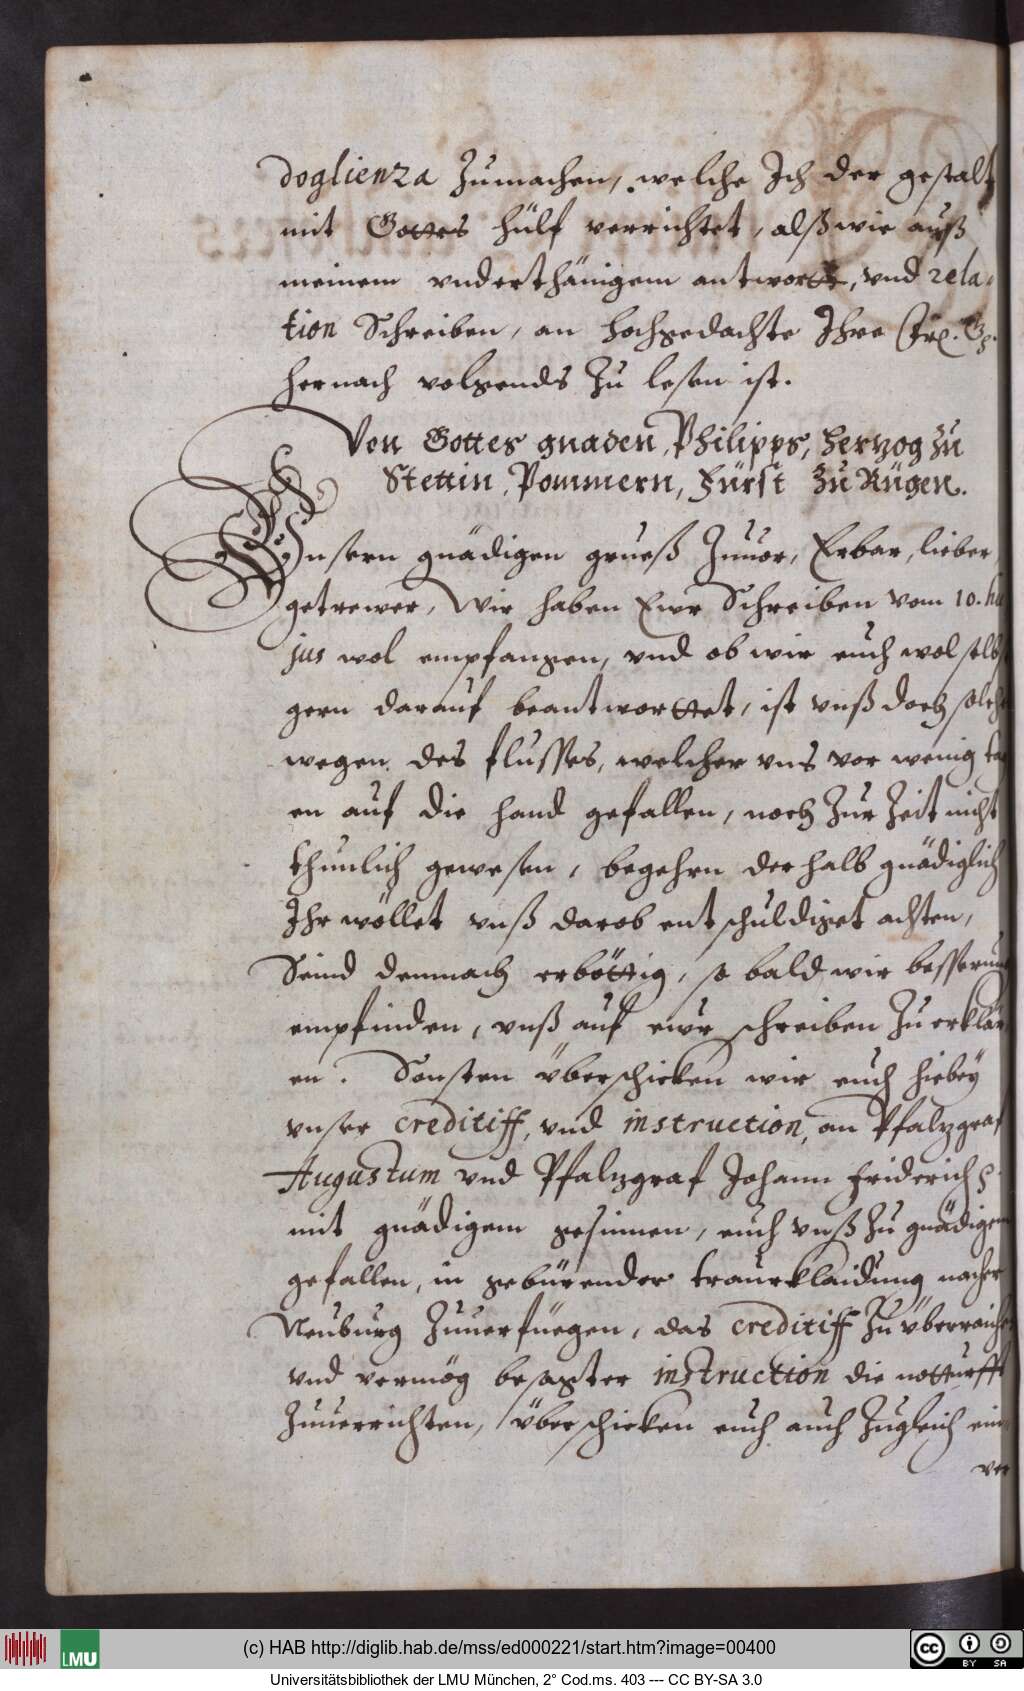 doglienza Zumachen, welche Ich der gestalt
mit Gottes hülf verrichtet, alß wie auß
meinem vnderthänigem antwortt, vnd rela-
tion Schreiben, an hochgedachte Ihre Frl. G.
hernach volgends Zu lesen ist.
Von Gottes gnaden, Philipps, Hertzog zu
Stettin, Pommern, Fürst Zu Rügen.
Vnsern gnädigen grueß Zuuor, Erbar, lieber
getrewer, Wir haben Ewr Schreiben vom 10. hu
jus wol empfangen, vnd ob wir euch wol selbs
gern darauf beantworttet, ist vnß doch solches
wegen des flusses, welcher vns vor wenig tag
en auf die hand gefallen, noch Zur Zeit nicht
thunlich gewesen, begehrn derhalb gnädiglich
Ihr wöllet vnß darob entschuldiget achten,
Seind demnach erböttig, so bald wir besserung
empfinden, vnß auf ewr schreiben Zu erklär
en. Sonsten überschicken wir euch hiebey
vnser creditiff, vnd instruction, an Pfalzgraf
Augustum vnd Pfalzgraf Johann Friderich p.
mit gnädigem gesinnen, euch vnß Zu gnädigem
gefallen, in gebürender traurklaidung nacher
Neuburg Zuuerfüegen, das creditiff Zu überraichen
vnd vermög besagter instruction die notturfft
Zuuerrichten, überschicken euch auch Zugleich ein
ver
(c) HAB http://diglib.hab.de/mss/ed000221/start.htm?image=00400
LMU
cc BY SA
Universitätsbibliothek der LMU München, 2° Cod.ms. 403 --- CC BY-SA 3.0